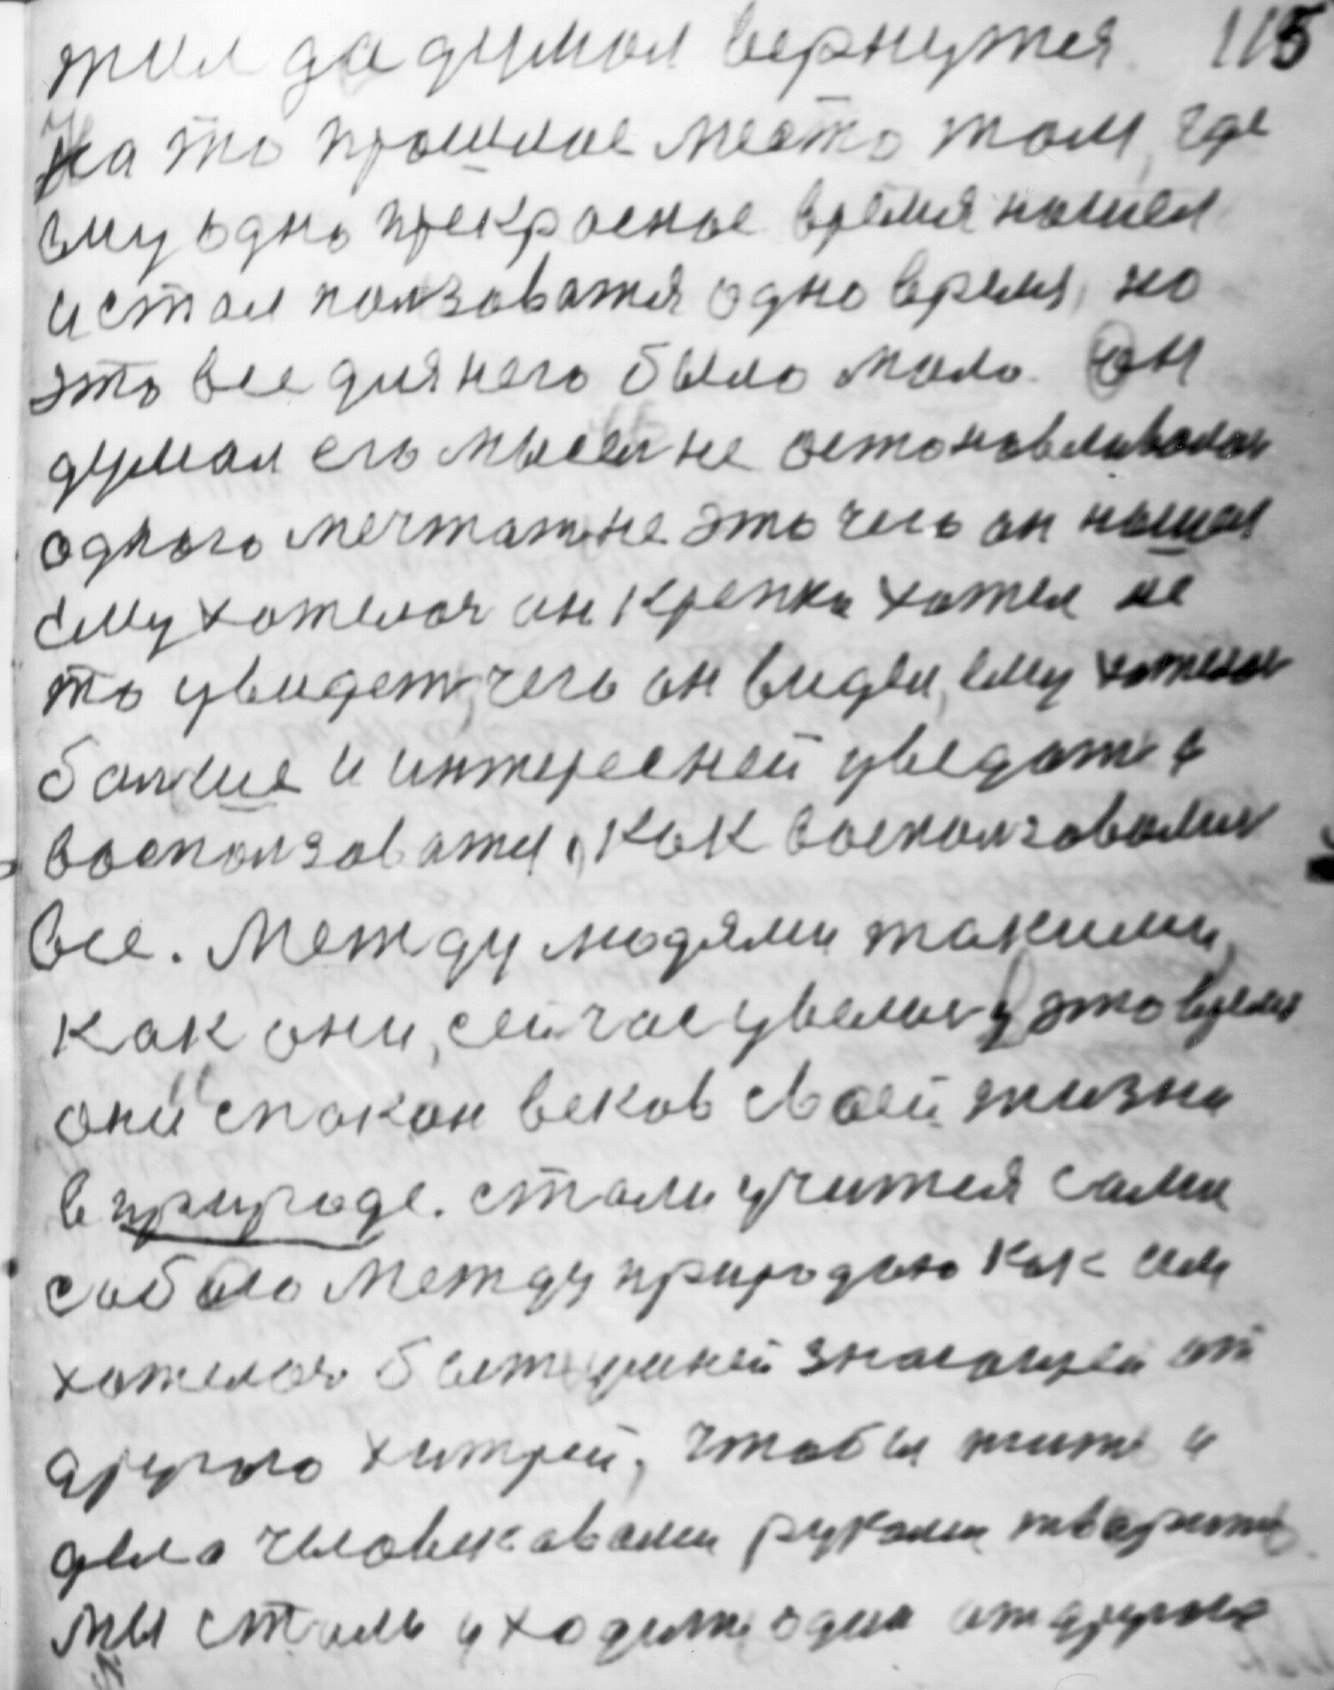 жил да думал вернутся 115
На то прошлое место там, где
ему одно прекрасное время нашел
и стал ползоватся одно время, но
это все для него было мало. он
думал его мысел не остонавливалас
одного мечтат не это чего он нашел
ему хотелос он крепки хотел не
то увидет, чего он видел, ему хотелос
болше и интересней уведат и
восползоватся, как восползовалис
все. Между людями такими,
как они, сейчас увелос у это время
они спокон веков своей жизни
в природе. стали учится сами
собою между природою как им
хотелос быт умней знающей от
другого хитрей, чтобы жит и
дела человековами руками творит
мы стали уходит один от другого